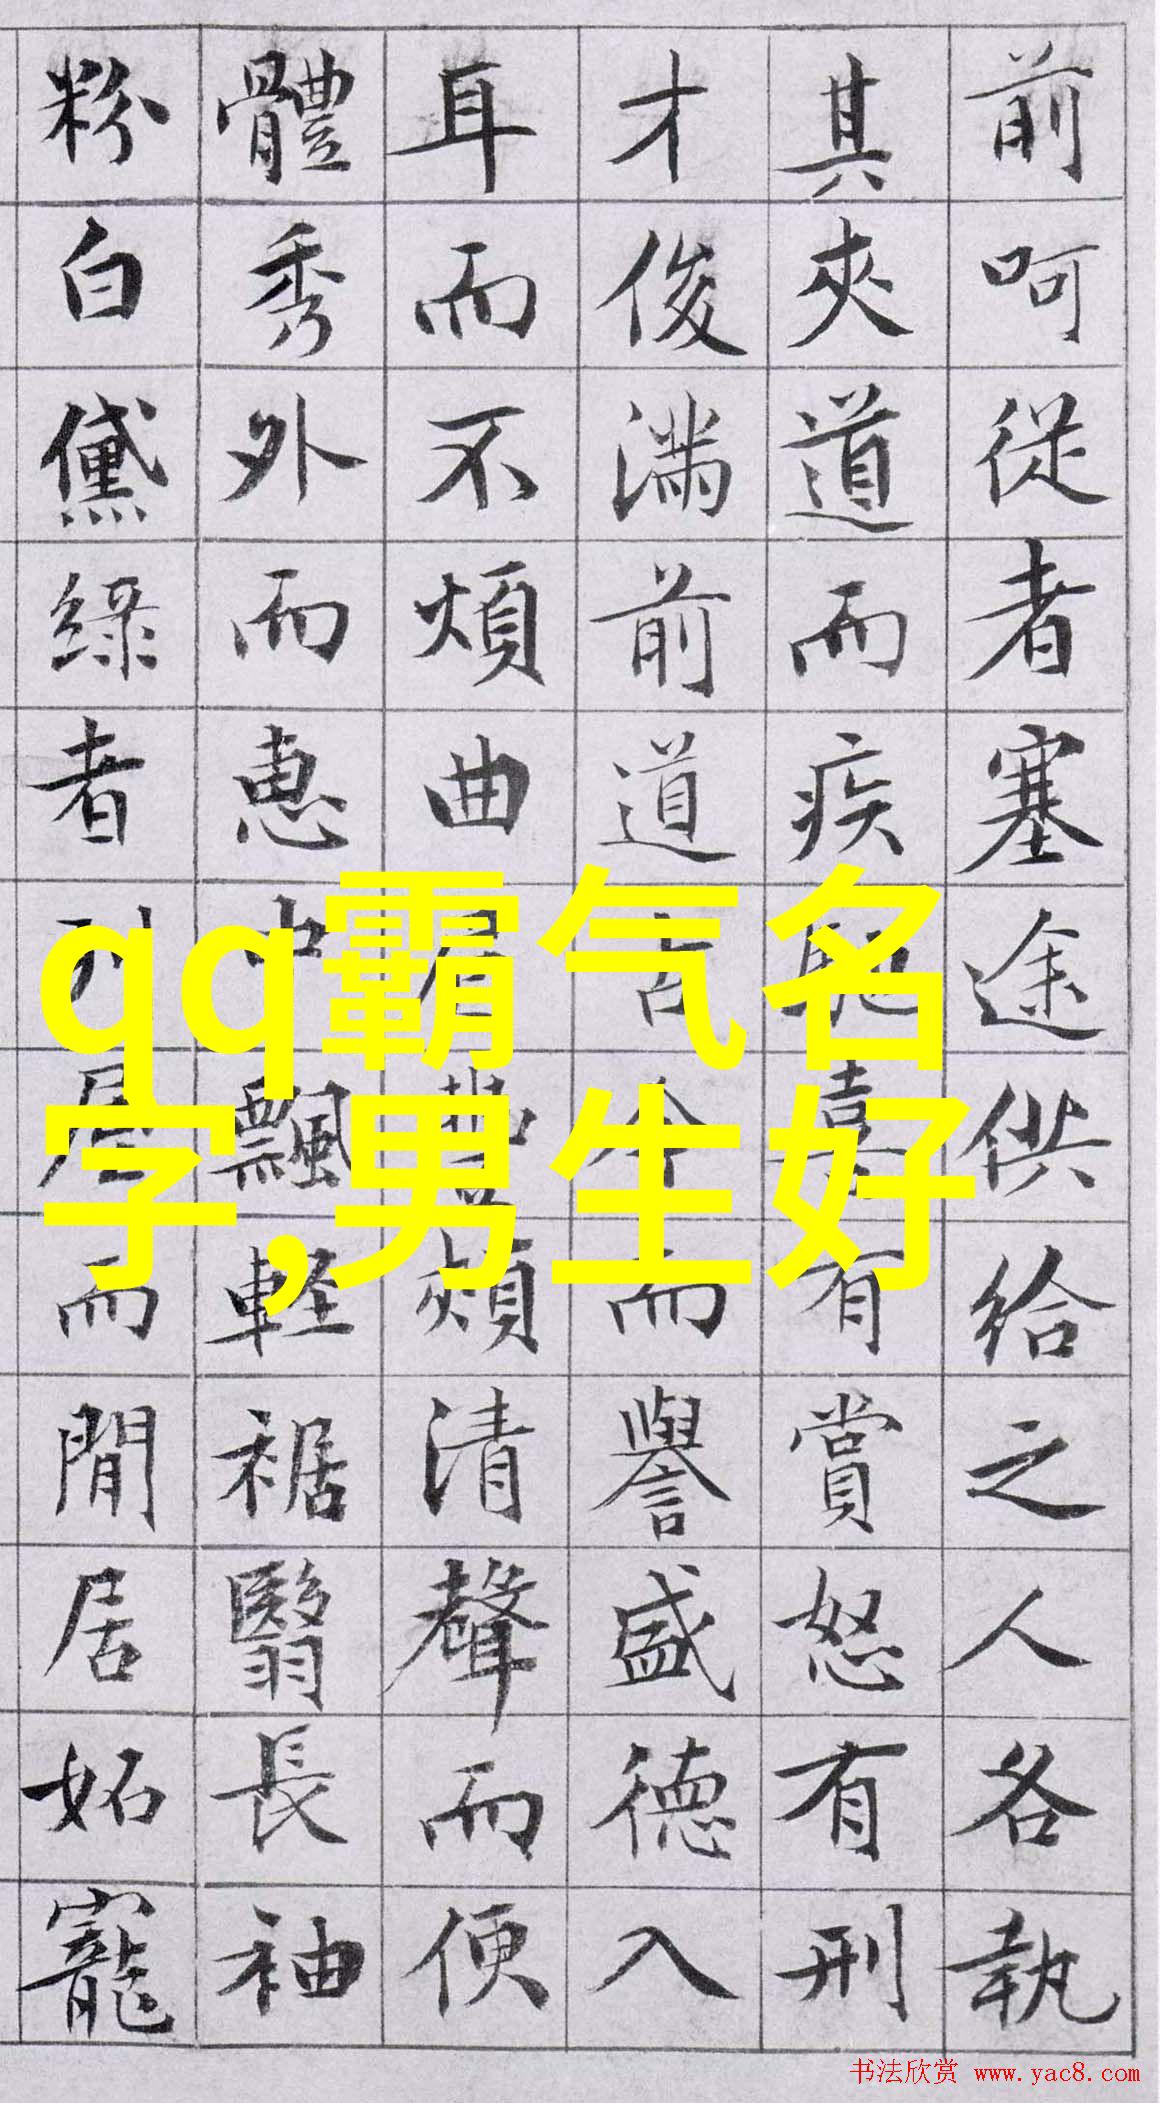 前呵從者塞途供給之人各執
其夾道而疾馳喜有賞怒有刑
才俊滿前道古今而譽盛德入
耳而不煩曲眉豊頰清聲而便
體秀外而恵中飄軽裾翳長袖
粉白黛綠者列屋而閒居妬寵
qq霸气名
字,男生好
书法欣赏 www.yac8.com